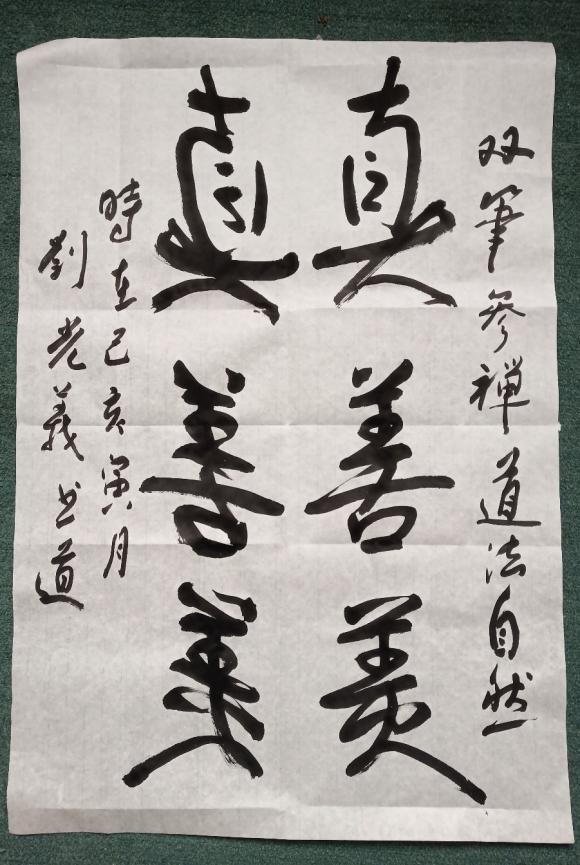 双筆参禅道法自然
真善美
真善美
時在己亥寅月
劉光義書道